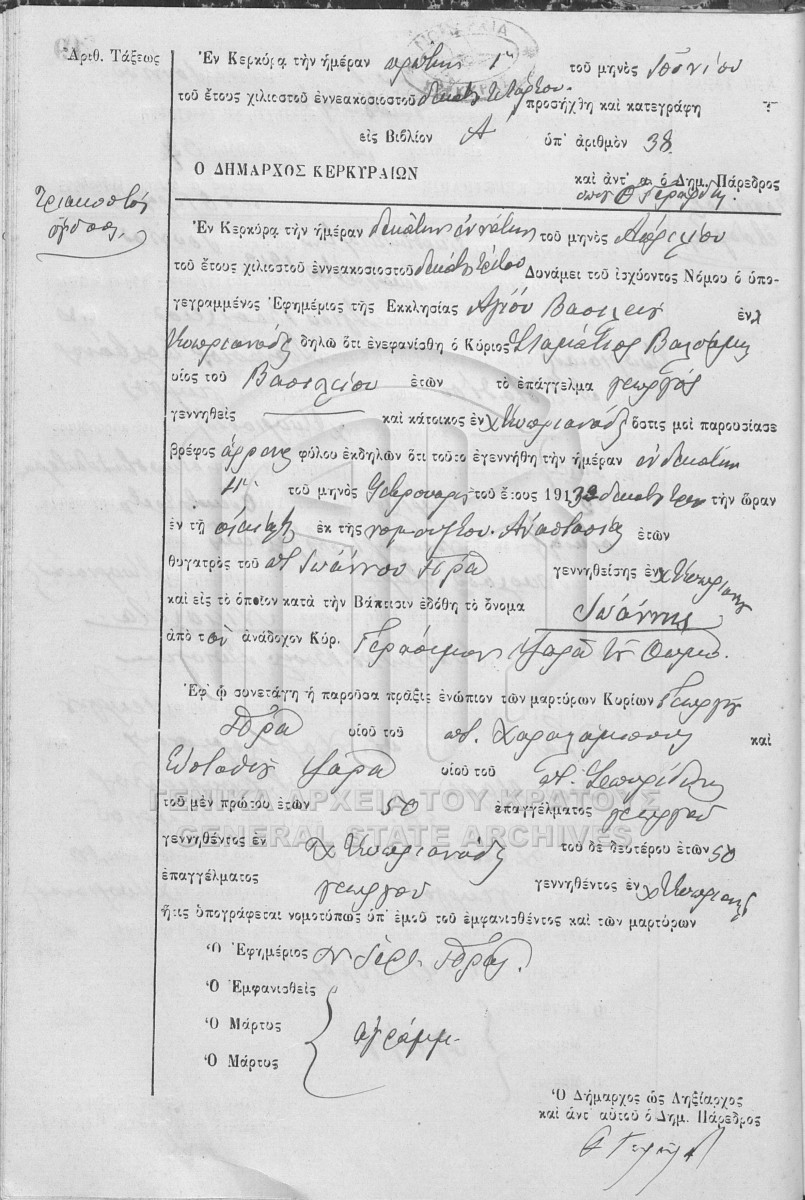 Ἀριθ. Τάξεως
Ἐν Κερκύρᾳ τὴν ἡμέραν πρώτην 1ην τοῦ μηνὸς Ἰουνίου
τοῦ ἔτους χιλιοστοῦ ἐννεακοσιοστοῦ δεκάτου τετάρτου προσήχθη καὶ κατεγράφη
εἰς Βιβλίον Α ὑπ' ἀριθμὸν 38
Ο ΔΗΜΑΡΧΟΣ ΚΕΡΚΥΡΑΙΩΝ
καὶ ἀντ' α. ὁ Δημ. Πάρεδρος
Τριακοστὸς
ὄγδοος
Ἐν Κερκύρᾳ τὴν ἡμέραν δεκάτην ἐννάτην τοῦ μηνὸς Ἀπριλίου
τοῦ ἔτους χιλιοστοῦ ἐννεακοσιοστοῦ δεκάτου τρίτου Δυνάμει τοῦ ἰσχύοντος Νόμου ὁ ὑπο-
γεγραμμένος Ἐφημέριος τῆς Ἐκκλησίας Ἁγίου Βασιλείου ἐν χ
Κυπριανάδες δηλῶ ὅτι ἐνεφανίσθη ὁ Κύριος Σταμάτιος Βαλσάμης
υἱὸς τοῦ Βασιλείου ἐτῶν τὸ ἐπάγγελμα γεωργὸς
γεννηθεὶς καὶ κάτοικος ἐν χ Κυπριανάδες ὅστις μοὶ παρουσίασε
βρέφος ἄρρενος φύλου ἐκδηλῶν ὅτι τοῦτο ἐγεννήθη τὴν ἡμέραν ἑνδεκάτην
11ην τοῦ μηνὸς Φεβρουαρίου τοῦ ἔτους 1913 δεκάτου τρίτου τὴν ὥραν
ἐν τῇ οἰκίᾳ ἐκ τῆς νομ. συζύγου Ἀναστασίας ἐτῶν
θυγατρὸς τοῦ π. Ἰωάννου γεννηθείσης ἐν χ Κυπριανάδες
καὶ εἰς τὸ ὁποῖον κατὰ τὴν Βάπτισιν ἐδόθη τὸ ὄνομα Ἰωάννης
ἀπὸ τὸν ἀνάδοχον Κύρ. Γεράσιμον
Ἐφ' ᾧ συνετάγη ἡ παροῦσα πρᾶξις ἐνώπιον τῶν μαρτύρων Κυρίων Γεωργίου
υἱοῦ τοῦ π. Χαραλάμπους καὶ
Εὐσταθίου υἱοῦ τοῦ π. Σπυρίδωνος
ΓΕΝΙΚΑ ΑΡΧΕΙΑ ΤΟΥ ΚΡΑΤΟΥΣ
τοῦ μὲν πρώτου ἐτῶν 50 ἐπαγγέλματος γεωργοῦ
GENERAL STATE ARCHIVES
γεννηθέντος ἐν χ Κυπριανάδες τοῦ δὲ δευτέρου ἐτῶν 50
ἐπαγγέλματος γεωργοῦ γεννηθέντος ἐν χ Κυπριανάδες
ἥτις ὑπογράφεται νομοτύπως ὑπ' ἐμοῦ τοῦ ἐμφανισθέντος καὶ τῶν μαρτύρων
Ὁ Ἐφημέριος
Ὁ Ἐμφανισθεὶς
Ὁ Μάρτυς ἀγράμμ.
Ὁ Μάρτυς
Ὁ Δήμαρχος ὡς Ληξίαρχος
καὶ ἀντ' αὐτοῦ ὁ Δημ. Πάρεδρος